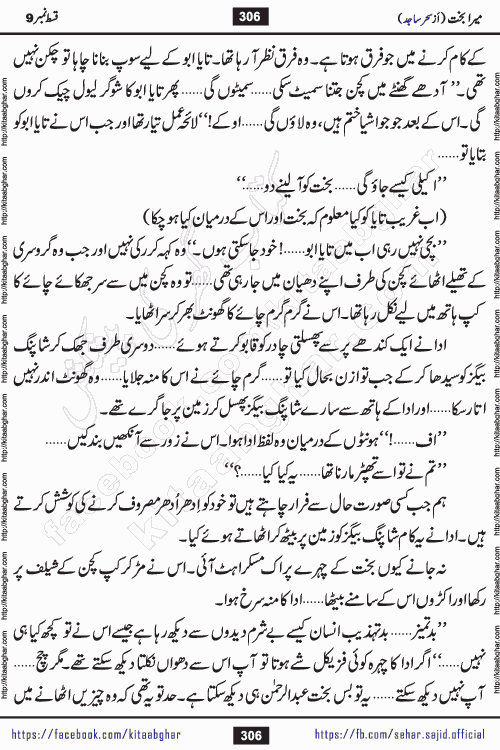 میرا بخت (از سحر ساجد)
306
قسط نمبر 9
کے کام کرنے میں جو فرق ہوتا ہے۔ وہ فرق نظر آ رہا تھا۔ تایا ابو کے لیے سوپ بنانا چاہا تو چکن نہیں
تھی۔ ’’آدھے گھنٹے میں کچن جتنا سمیٹ سکی...... سمیٹوں گی...... پھر تایا ابو کا شوگر لیول چیک کروں
گی۔ اس کے بعد جو جو اشیا ختم ہیں، وہ لاؤں گی...... اوکے!‘‘ لائحہ عمل تیار تھا اور جب اس نے تایا ابو کو
بتایا تو......
’’اکیلی کیسے جاؤ گی...... بخت کو آ لینے دو......‘‘
(اب غریب تایا کو کیا معلوم کہ بخت اور اس کے درمیان کیا ہو چکا)
’’بچی نہیں رہی اب میں تایا ابو......! خود جا سکتی ہوں۔‘‘ وہ کہہ کر رکی نہیں اور جب وہ گروسری
کے تھیلے اٹھائے کچن کی طرف اپنے دھیان میں جا رہی تھی...... تو وہ کچن میں سے سر جھکائے چائے کا
کپ ہاتھ میں لیے نکل رہا تھا۔ اس نے گرم گرم چائے کا گھونٹ بھر کر سر اٹھایا۔
ادا نے ایک کندھے پر سے پھسلتی چادر کو قابو کرتے ہوئے...... دوسری طرف جھک کر شاپنگ
بیگز کو سیدھا کر کے جب توازن بحال کیا تو...... گرم چائے نے اس کا منہ جلایا...... وہ گھونٹ اندر نہیں
اتار سکا...... اور ادا کے ہاتھ سے سارے شاپنگ بیگز پھسل کر زمین پر جا گرے تھے۔
’’اف......!‘‘ ہونٹوں کے درمیان وہ لفظ ادا ہوا۔ اس نے زور سے آنکھیں بند کیں......
’’تم نے تو اسے تھپڑ مارنا تھا...... یہ کیا کیا......؟‘‘
ہم جب کسی صورت حال سے فرار چاہتے ہیں تو خود کو اِدھر اُدھر مصروف کرنے کی کوشش کرتے
ہیں۔ ادا نے یہ کام شاپنگ بیگز کو زمین پر بیٹھ کر اٹھاتے ہوئے کیا۔
نہ جانے کیوں بخت کے چہرے پر اک مسکراہٹ آئی۔ اس نے مڑ کر کپ کچن کے شیلف پر
رکھا اور اکڑوں اس کے سامنے بیٹھا...... ادا کا منہ سرخ ہوا۔
’’بدتمیز...... بدتہذیب انسان کیسے بے شرم دیدوں سے دیکھ رہا ہے جیسے اس نے تو کچھ کیا ہی
نہیں......‘‘ اگر ادا کا چہرہ کوئی فزیکل شے ہوتا تو آپ اس سے دھواں نکلتا دیکھ سکتے تھے۔ مگر چچ......
آپ نہیں دیکھ سکتے...... یہ تو بس بخت عبدالرحمٰن ہی دیکھ سکتا ہے۔ حد تو یہ تھی کہ وہ چیزیں اٹھانے میں
https://facebook.com/kitaabghar
306
https://fb.com/sehar.sajid.official
http://kitaabghar.com